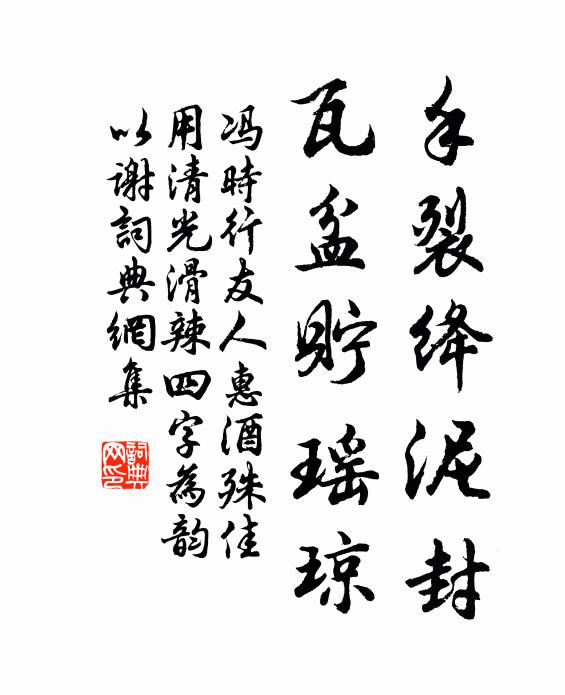 手裂绛泥封
瓦盆貯瑶琼
冯時行友人惠酒殊佳
用清光滑辣四字為韵
以谢詞典網集
詞典
网印